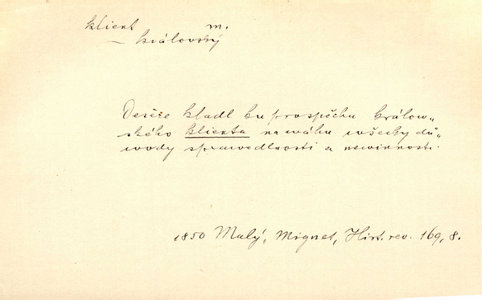 klient m.
– královský
Desèze kladl ku prospěchu králow-
ského klienta na wáhu wšecky dů-
wody sprawedlnosti a newinnosti.
1850 Malý, Mignet, Hist. rev. 169, 8.